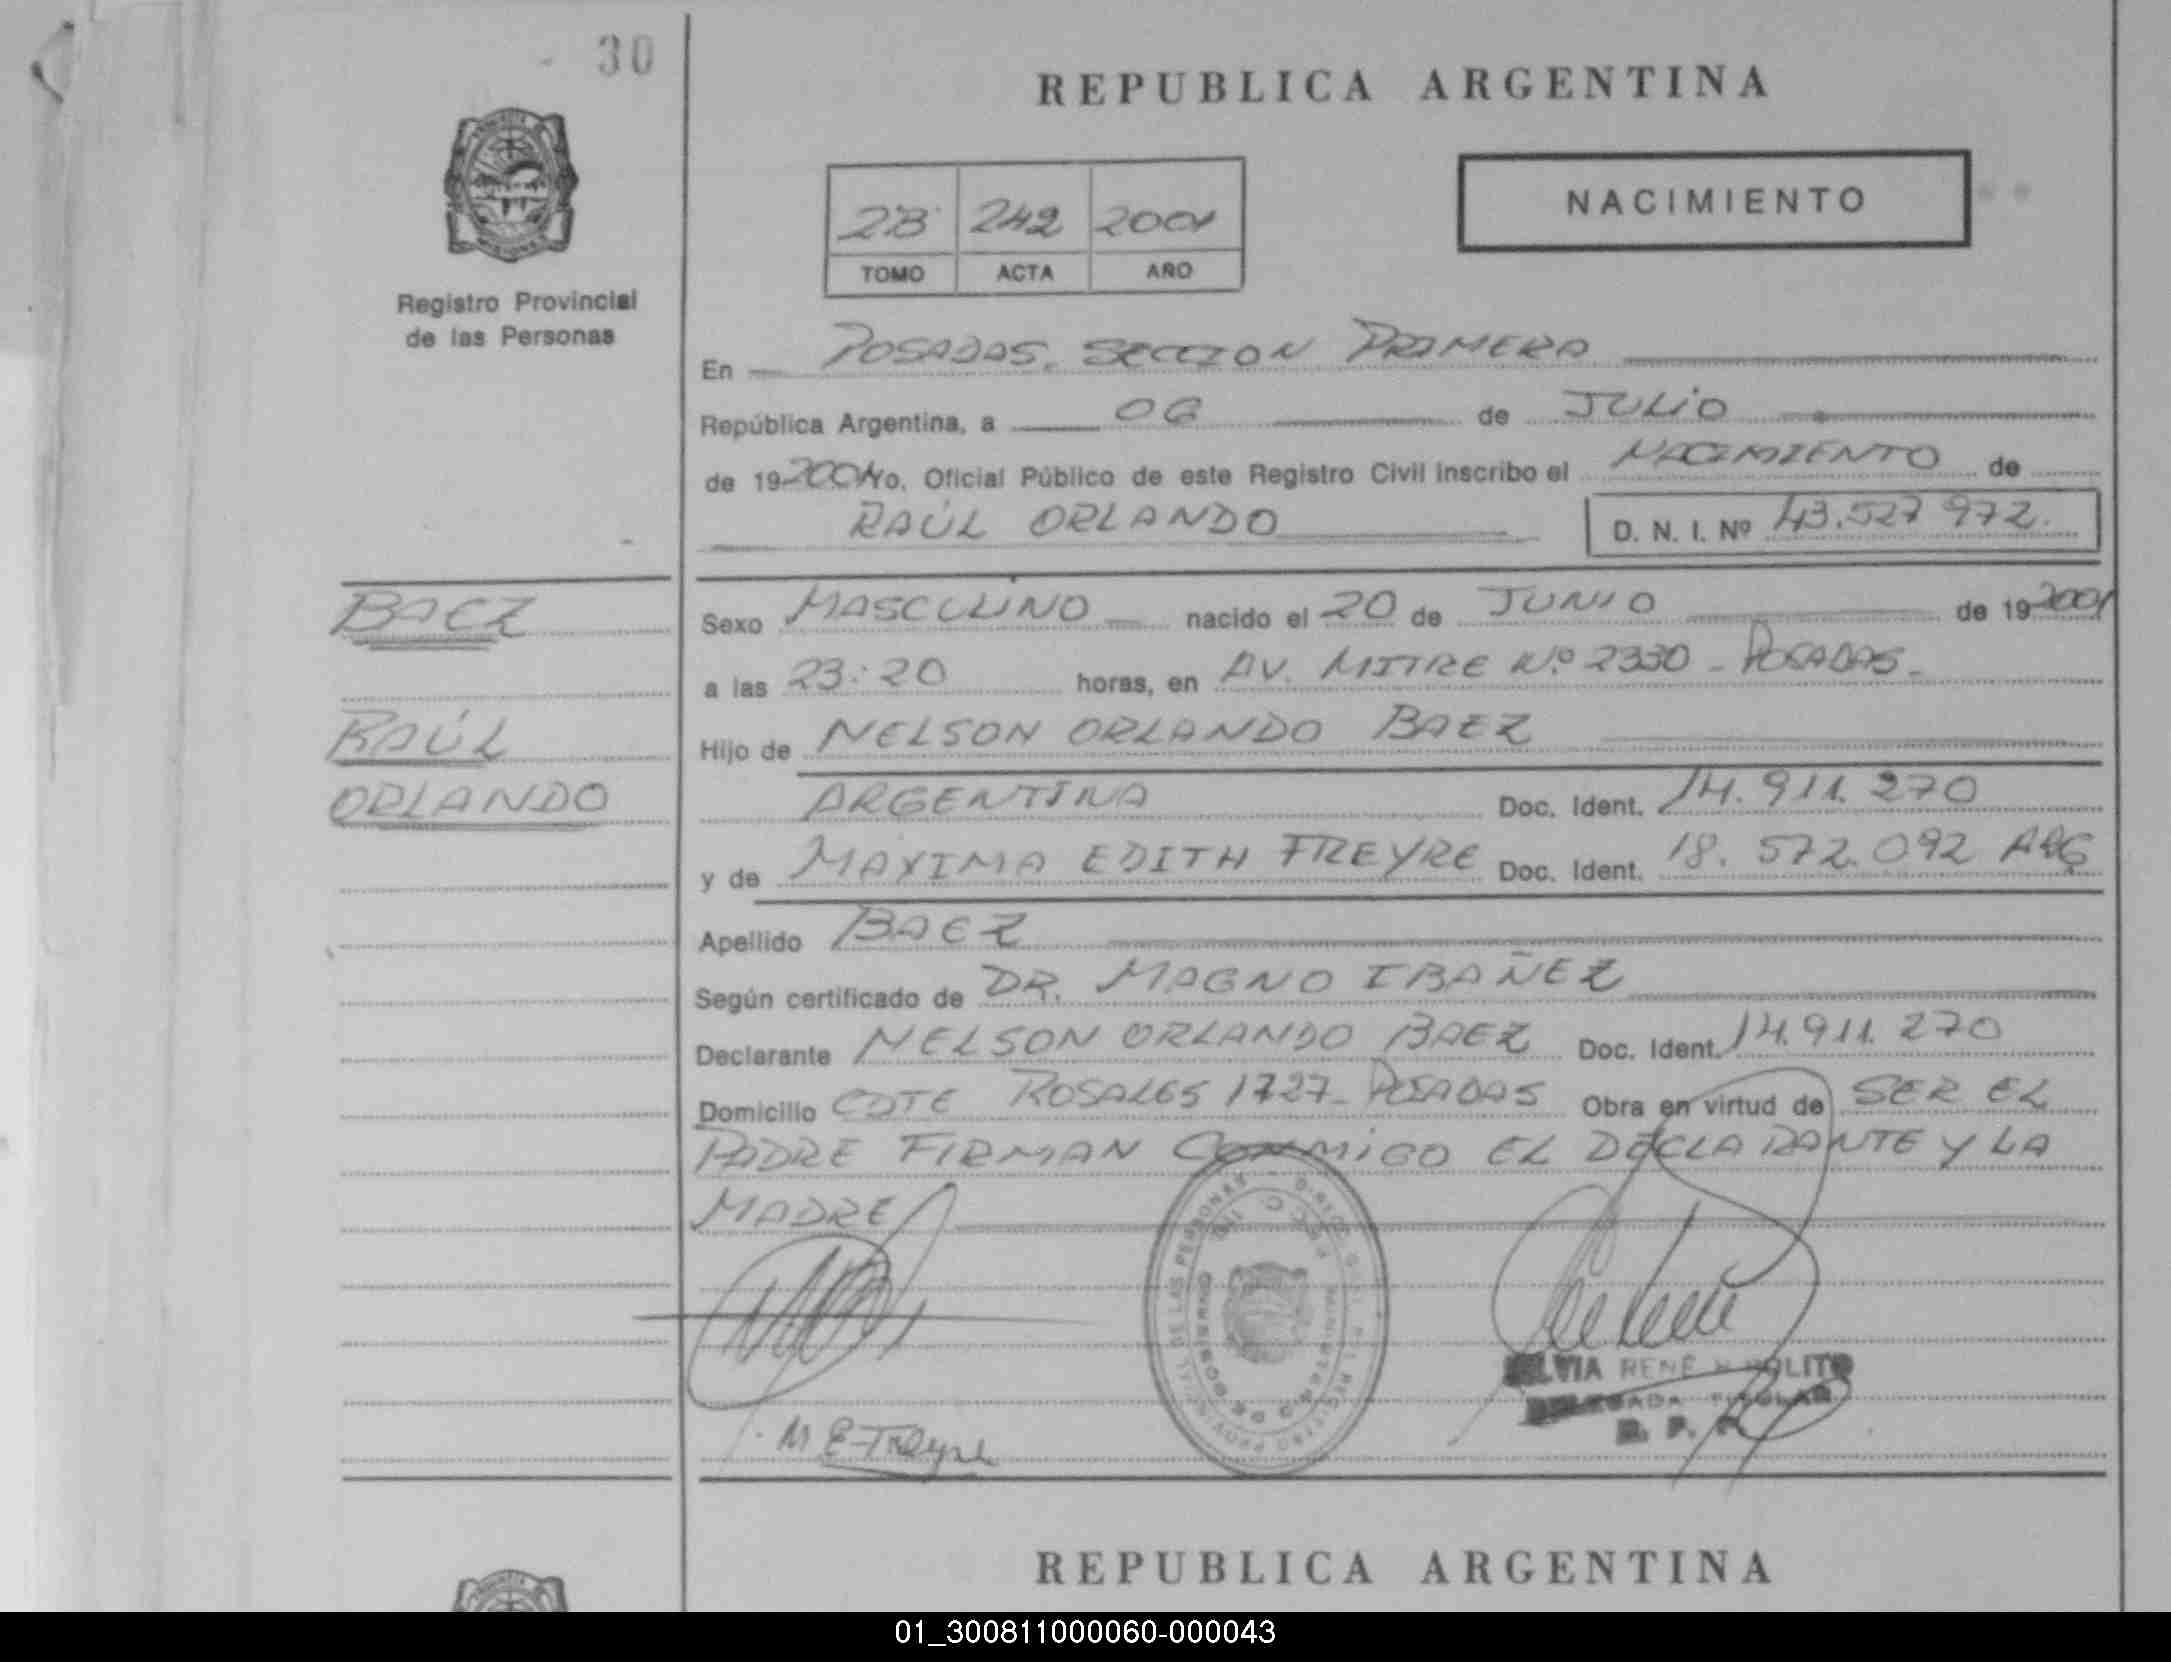 30
REPUBLICA ARGENTINA
NACIMIENTO
2B 242 2001
TOMO ACTA AÑO
Registro Provincial
de las Personas
En POSADAS. SECCION PRIMERA
República Argentina, a 06 de JULIO
de 19 2001 Yo, Oficial Público de este Registro Civil inscribo el NACIMIENTO de
RAÚL ORLANDO D. N. I. Nº 43.527 972.
BAEZ
RAÚL
ORLANDO
Sexo MASCULINO nacido el 20 de JUNIO de 19 2001
a las 23:20 horas, en AV. MITRE N.º 2330 - POSADAS-
Hijo de NELSON ORLANDO BAEZ
ARGENTINA Doc. Ident. 14.911.270
y de MAXIMA EDITH FREYRE Doc. Ident. 18.572.092 ARG
Apellido BAEZ
Según certificado de DR. MAGNO IBAÑEZ
Declarante NELSON ORLANDO BAEZ Doc. Ident. 14.911.270
Domicilio CDTE ROSALES 1727- POSADAS Obra en virtud de SER EL
PADRE FIRMAN CONMIGO EL DECLARANTE Y LA
MADRE
M E Freyre
REPUBLICA ARGENTINA
01_300811000060-000043